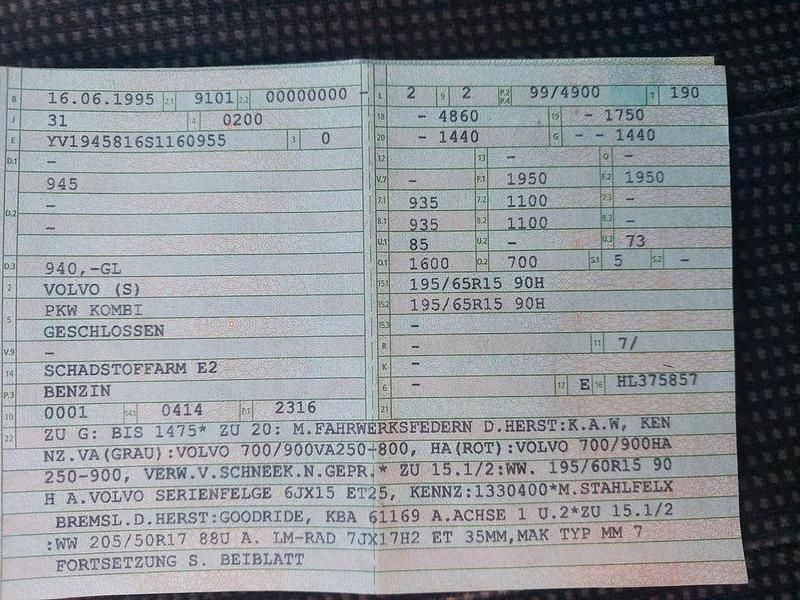 B 16.06.1995 2.1 9101 2.2 00000000 -
J 31 4 0200
E YV1945816S1160955 3 0
D.1 -
945
-
D.2
-
D.3 940,-GL
2 VOLVO (S)
PKW KOMBI
5
GESCHLOSSEN
V.9 -
14 SCHADSTOFFARM E2
P.3 BENZIN
10 0001 14.1 0414 P.1 2316
L 2 9 2 P.2 P.4 99/4900 T 190
18 - 4860 19 - 1750
20 - 1440 G - - 1440
12 13 - Q -
V.7 - F.1 1950 F.2 1950
7.1 935 7.2 1100 7.3 -
8.1 935 8.2 1100 8.3 -
U.1 85 U.2 - U.3 73
O.1 1600 O.2 700 S.1 5 S.2 -
15.1 195/65R15 90H
15.2 195/65R15 90H
15.3 -
R - 11 7/
K -
6 - 17 E 16 HL375857
21
22 ZU G: BIS 1475* ZU 20: M.FAHRWERKSFEDERN D.HERST:K.A.W, KEN
NZ.VA(GRAU):VOLVO 700/900VA250-800, HA(ROT):VOLVO 700/900HA
250-900, VERW.V.SCHNEEK.N.GEPR.* ZU 15.1/2:WW. 195/60R15 90
H A.VOLVO SERIENFELGE 6JX15 ET25, KENNZ:1330400*M.STAHLFELX
BREMSL.D.HERST:GOODRIDE, KBA 61169 A.ACHSE 1 U.2*ZU 15.1/2
:WW 205/50R17 88U A. LM-RAD 7JX17H2 ET 35MM,MAK TYP MM 7
FORTSETZUNG S. BEIBLATT